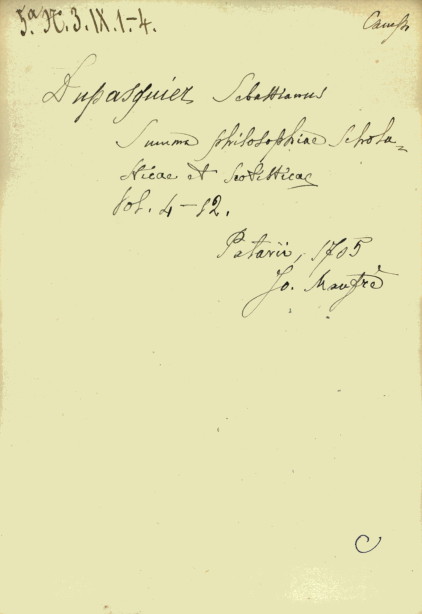 5.a K.3.IX.1-4.
Dupasquier Sebastianus
Summa philosophiae schola=
sticae et scotisticae
Vol. 4-12.
Patavii, 1705
Jo. Manfrè